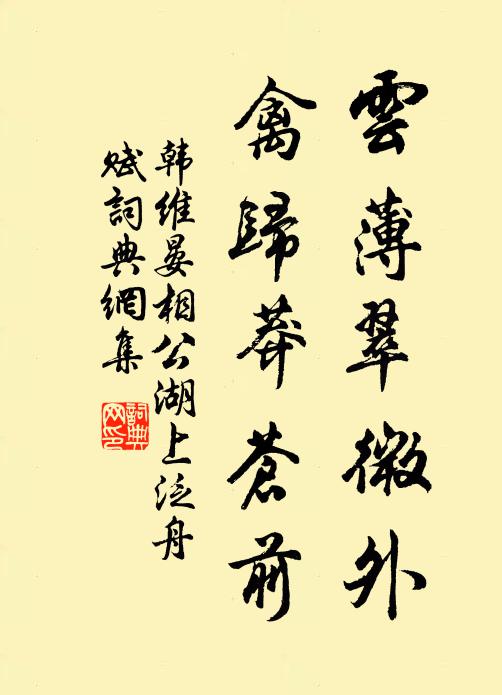 雲薄翠微外
禽歸莽蒼前
韩維晏相公湖上泛舟
赋詞典網集
詞典网印